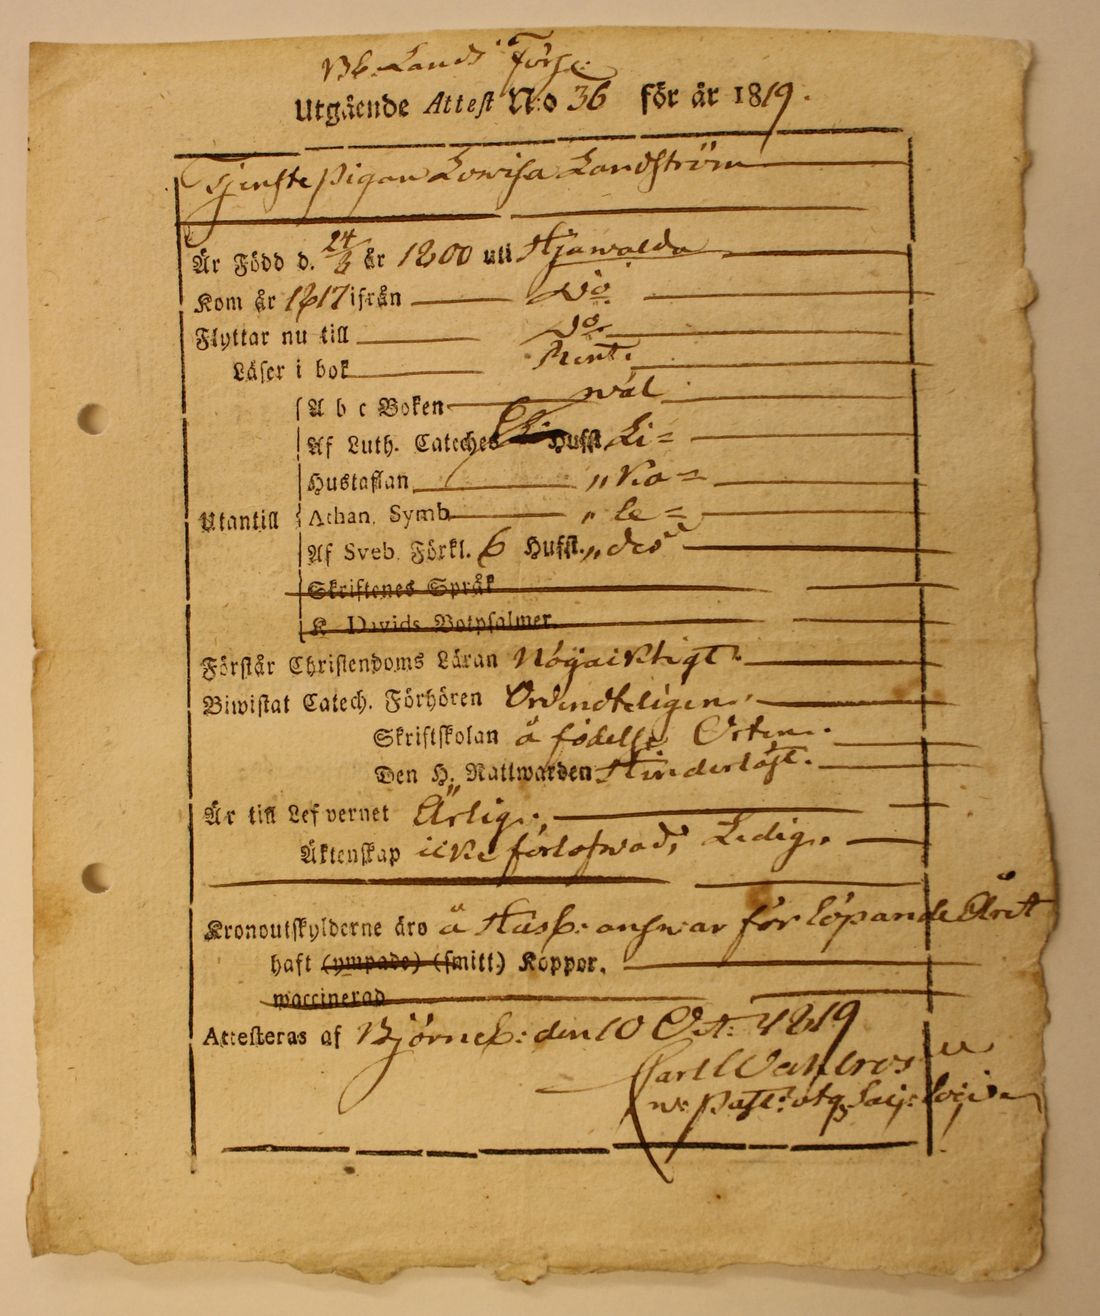 Bb. Lands Förs:
Utgående Attest N:o 36 för år 1819.
Tjenste pigan Lowisa Landström
Är Född d. 24/8 år 1800 uti Hjwalda
Kom år 1817 ifrån Do
Flyttar nu till Do
Läser i bok Rent.
A b c Boken wäl
Af Luth. Cateches Hufst. Li=
Hustaflan „ Ka=
Utantill Athan. Symb. „ le=
Af Sveb. Förkl. 6 Hufst. „ des
Skriftenes Språk
K. Davids Botpsalmer.
Förstår Christendoms Läran Nögaiktigt.
Biwistat Catech. Förhören Ordendteligen.
Skriftskolan å födelse Orten.
Den H. Nattwarden Hinderlöst.
Är till Lefvernet Ärlig.
Äktenskap icke förlofwad, Ledig.
Kronoutskylderne äro å Husb: answar för löpande Året
haft (ympade) (smitt.) Koppor.
waccinerad
Attesteras af Björneb: den 10 Oct: 1819
Carl Wahlroos